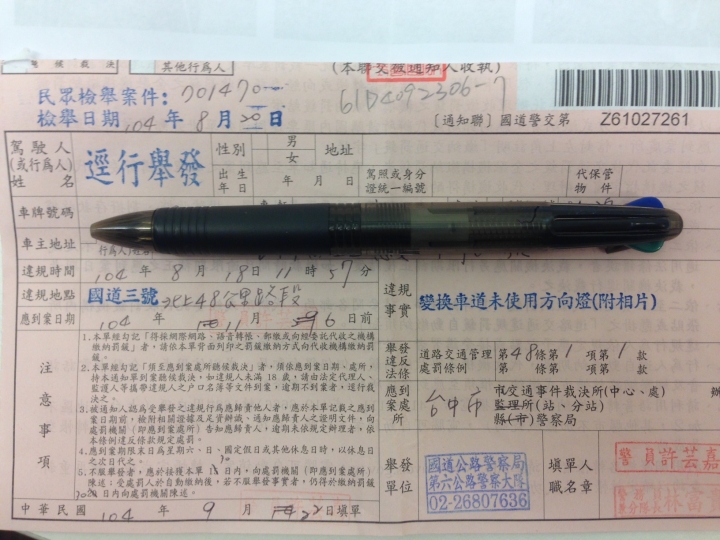 其他行為人
(本聯交被通知人收執)
民眾檢舉案件: 701470
檢舉日期 104 年 8 月 20 日
61D4092306-7
〔通知聯〕國道警交第 Z61027261
駕駛人
(或行為人)
姓名
逕行舉發
性別
男
女
地址
出生
年日
年 月 日
駕照或身分
證統一編號
代保管
物件
車牌號碼
車主地址
違規時間 104 年 8 月 18 日 11 時 57 分
違規地點 國道三號 北上48公里路段
應到案日期 104 年 11 月 6 日前
違規事實
變換車道未使用方向燈(附相片)
舉發違反法條
道路交通管理
處罰條例
第 48 條第 1 項第 1 款
應到案處所
台中市
市交通事件裁決所(中心、處)
監理所(站、分站)
縣(市)警察局
辦
注意事項
1.本單經勾記「得採網際網路、語音轉帳、郵繳或向經委託代收之機構
繳納罰鍰」者,請依本單背面列印之罰鍰繳納方式向代收機構繳納罰
鍰。
2.本單經勾記「須至應到案處所聽候裁決」者,須依應到案日期、處所,
持本通知單到案聽候裁決。如違規人未滿 18 歲,請由法定代理人、
監護人等攜帶違規人之戶口名簿等文件到案,逾期不到案者,逕行裁
決之。
3.被通知人認為受舉發之違規行為應歸責他人者,應於本單記載之應到
案日期前,檢附相關證據及足資辨識、通知應歸責人之證明文件,向
處罰機關(即應到案處所)告知應歸責人,逾期未依規定辦理者,依
本條例違反條款規定處罰。
4.應到案日期限末日為星期六、日、國定假日或其他休息日時,以休息日
之次日代之。
5.不服舉發者,應於接獲本單
日內,向處罰機關(即應到案處所)
陳述;受處罰人於自動繳納後,若不服舉發事實者,仍得於繳納罰鍰
日內向處罰機關陳述。
中華民國 104 年 9 月 22 日填單
舉發單位
國道公路警察局
第六公路警察大隊
02-26807636
填單人
職名章
警員許芸嘉